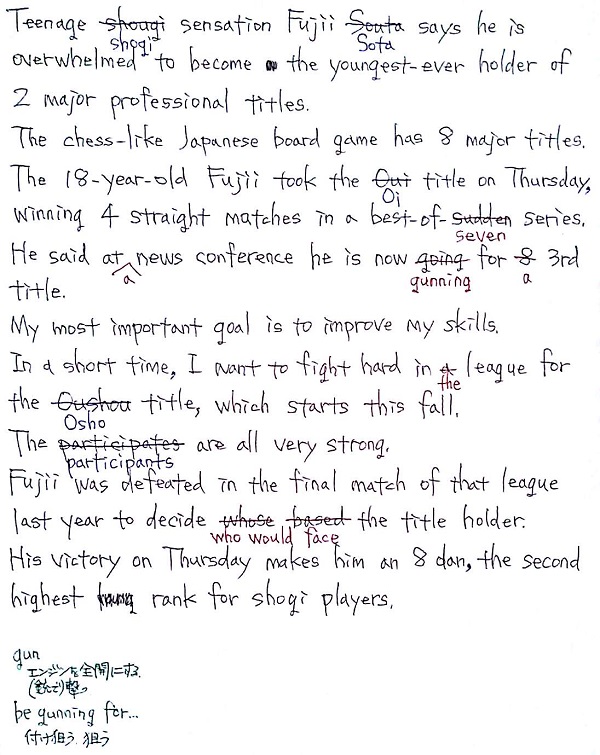 Teenage shougi sensation Fujii Souta says he is
shogi Sota
overwhelmed to become the youngest-ever holder of
2 major professional titles.
The chess-like Japanese board game has 8 major titles.
The 18-year-old Fujii took the Oui title on Thursday,
Oi
winning 4 straight matches in a best-of-sudden series.
seven
He said at news conference he is now going for 8 3rd
a gunning a
title.
My most important goal is to improve my skills.
In a short time, I want to fight hard in a league for
the
the Oushou title, which starts this fall.
Osho
The participates are all very strong.
participants
Fujii was defeated in the final match of that league
last year to decide whose based the title holder.
who would face
His victory on Thursday makes him an 8 dan, the second
highest rank for shogi players.
gun
エンジンを全開にする.
(銃で)撃つ
be gunning for...
付け狙う. 狙う